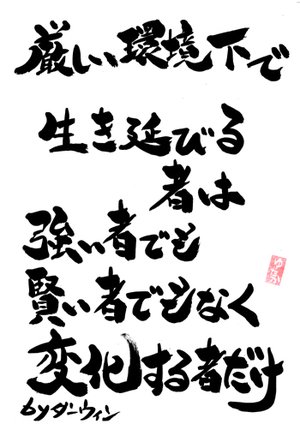 厳しい環境下で
生き延びる
者は
強い者でも
賢い者でもなく
変化する者だけ
byダーウィン